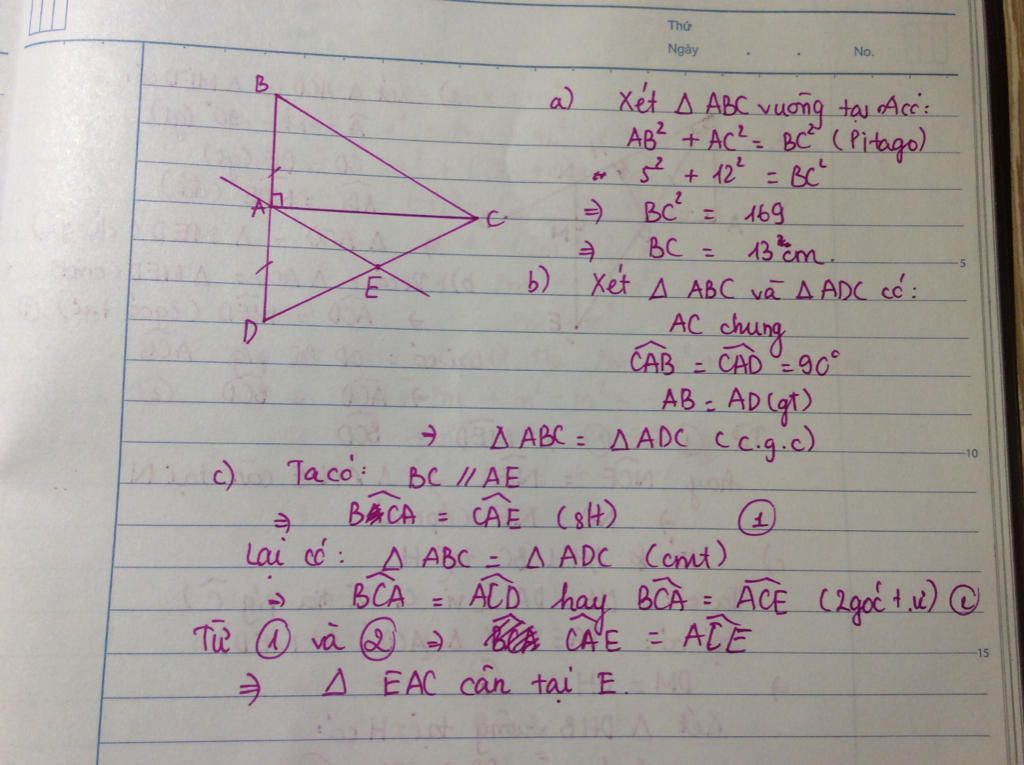 Thứ
Ngày . . No.
B
A
C
E
D
a) Xét Δ ABC vuông tại A có:
AB² + AC² = BC² (Pitago)
5² + 12² = BC²
⇒ BC² = 169
⇒ BC = 13 cm.
5
b) Xét Δ ABC và Δ ADC có:
AC chung
CAB = CAD = 90°
AB = AD (gt)
⇒ Δ ABC = Δ ADC (c.g.c)
10
c) Ta có: BC // AE
⇒ BCA = CAE (slt) ①
Lại có: Δ ABC = Δ ADC (cmt)
⇒ BCA = ACD hay BCA = ACE (2 góc t.ư) ②
Từ ① và ② ⇒ CAE = ACE
15
⇒ Δ EAC cân tại E.